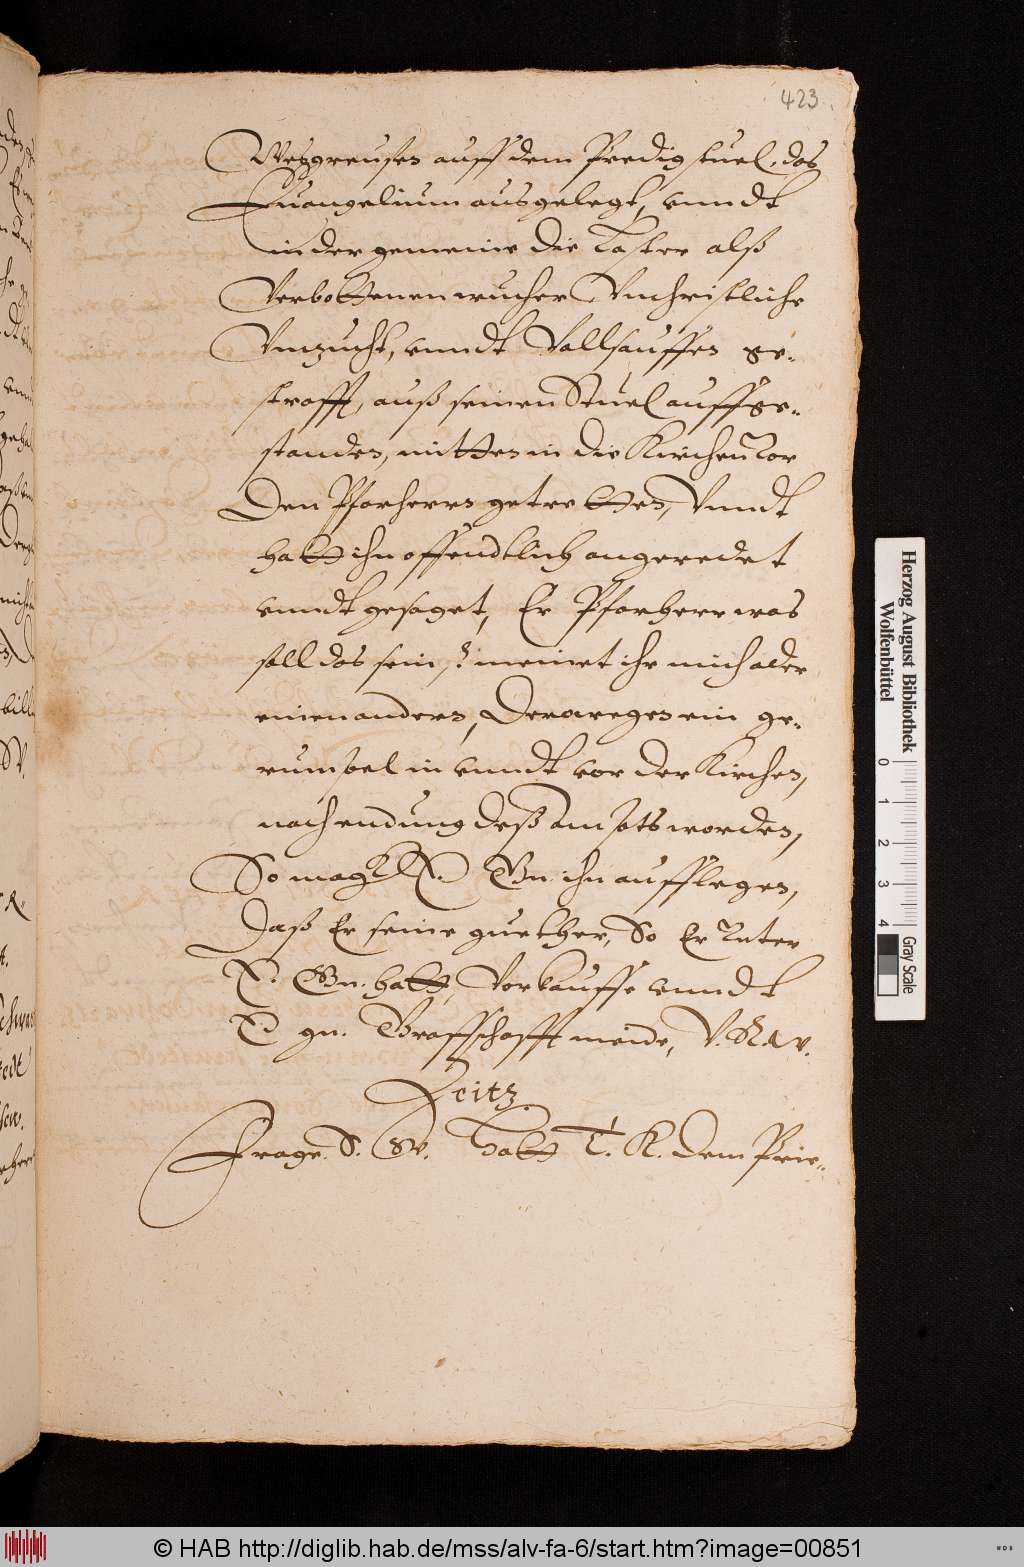 423
Wetzgreussen auff dem Predigstuel, das
Euangelium ausgelegt, vnndt
in der gemeine die Laster alß
Verbottenen wucher Vnchristliche
Vnzucht, vnndt Vollsauffen ge-
strafft, auß seinen Stuel auffge-
standen, mitten in die Kirchen Vor
Den Pfarherrn getretten, Vnndt
hatt ihn offendtlich angeredet
vnndt gesaget, Er Pfarherr was
soll das sein,? meinet ihr mich oder
einen andern, Derwegen ein ge-
rumpel in vnndt vor der Kirchen,
nach endung deß Ampts worden,
So mag E. Gn. ihn aufflegen,
Daß Er seine guether, So Er Unter
E. Gn. hatt, Vorkauffe vnndt
E gn. Graffschafft meide, V. R. w.
Zeitz.
Frage. S. W. Hatt T. K. dem Prie-
Herzog August Bibliothek
Wolfenbüttel
0 1 2 3 4
Gray Scale
© HAB http://diglib.hab.de/mss/alv-fa-6/start.htm?image=00851